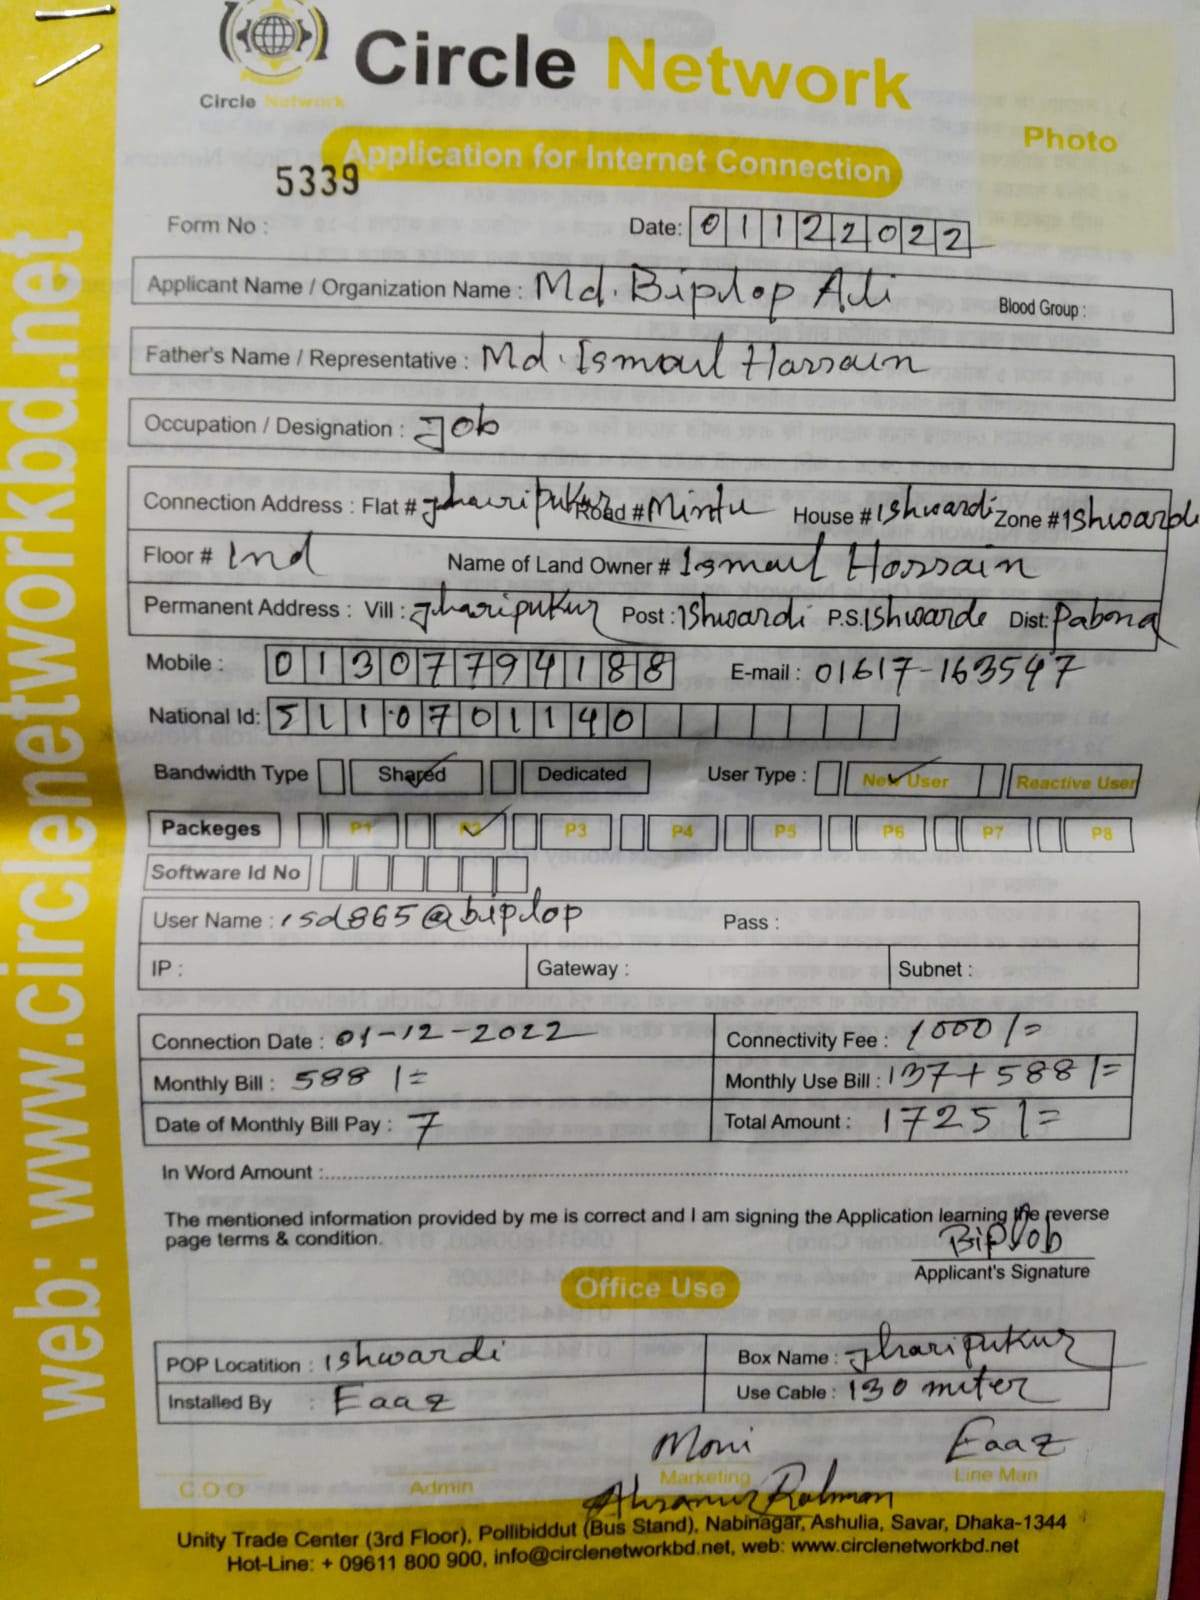 Circle Network
Circle Network
Photo
Application for Internet Connection
5339
Form No :
Date: 01122022
Applicant Name / Organization Name : Md. Biplop Ali Blood Group :
Father's Name / Representative : Md. Ismail Hossain
Occupation / Designation : Job
Connection Address : Flat # Jharipukur Road # Mintu House # Ishwardi Zone # Ishwardi
Floor # Ind Name of Land Owner # Ismail Hossain
Permanent Address : Vill : Jharipukur Post : Ishwardi P.S. Ishwarde Dist: Pabona
Mobile : 01307794188 E-mail : 01617-163547
National Id: 5110701140
Bandwidth Type Shared Dedicated User Type : New User Reactive User
Packeges P1 P2 P3 P4 P5 P6 P7 P8
Software Id No
User Name : isd865@biplop Pass :
IP : Gateway : Subnet :
Connection Date : 01-12-2022 Connectivity Fee : 1000/=
Monthly Bill : 588/= Monthly Use Bill : 137+588/=
Date of Monthly Bill Pay : 7 Total Amount : 1725/=
In Word Amount :
The mentioned information provided by me is correct and I am signing the Application learning the reverse
page terms & condition.
Biplob
Applicant's Signature
Office Use
POP Locatition : Ishwardi Box Name : Jharipukur
Installed By : Eaaz Use Cable : 130 miter
Moni Eaaz
C.O.O Admin Marketing Line Man
Ahsanur Rahman
Unity Trade Center (3rd Floor), Pollibiddut (Bus Stand), Nabinagar, Ashulia, Savar, Dhaka-1344
Hot-Line: + 09611 800 900, info@circlenetworkbd.net, web: www.circlenetworkbd.net
web: www.circlenetworkbd.net